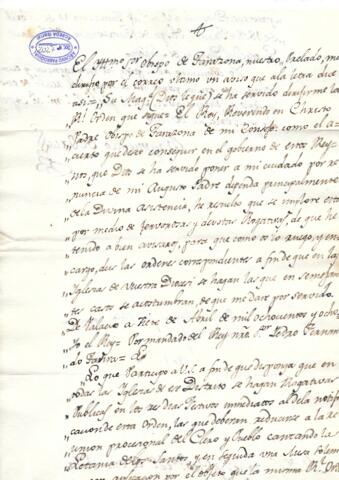 El Illmo Sor Obispo de Tarazona, nuestro Prelado, me
dirige por el correo ultimo un aviso que a la letra dice
asi = Su Mag. (Dios le gue) se ha servido dirigirme la
"Rl. Orden que sigue = El Rey = Reverendo en Christo
"Padre Obispo de Tarazona de mi Consejo = como el a-
"cierto que deseo conseguir en el gobierno de estos Rey-
"nos, que Dios se ha servido poner a mi cuidado por re-
"nuncia de mi Augusto Padre dependa principalmente
"de la Divina Asistencia, he resuelto que se implore esta
"por medio de fervorosas y devotas Rogativas, de que he
"tenido a bien avisaros, para que como os lo ruego, y en-
"cargo, deis las ordenes correspondientes a fin de que en las
"Iglesias de Vuestra Diocesi se hagan las que en semejan-
"tes casos se acostumbran, de que me dare por servido.
"De Palacio a siete de Abril de mil ochocientos y ocho =
"Yo el Rey = Por mandado del Rey nro Sr. Pedro Fernan-
"do Tavira =
"Lo que participo a V.S. a fin de que disponga que en
"todas las Iglesias de ese Distrito se hagan Rogativas
"Publicas en los tres dias Festivos inmediatos al de la notifi-
"cacion de esta Orden, las que deberan reducirse a la re-
"union procesional del Clero y Pueblo cantando la
"Letania de los Santos, y en seguida una Misa solem-